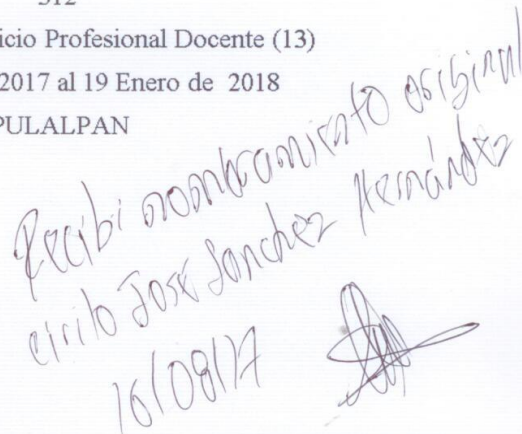 312
icio Profesional Docente (13)
2017 al 19 Enero de 2018
PULALPAN
Recibi nombramiento original
cirilo José Sanchez Hernández
16/08/17